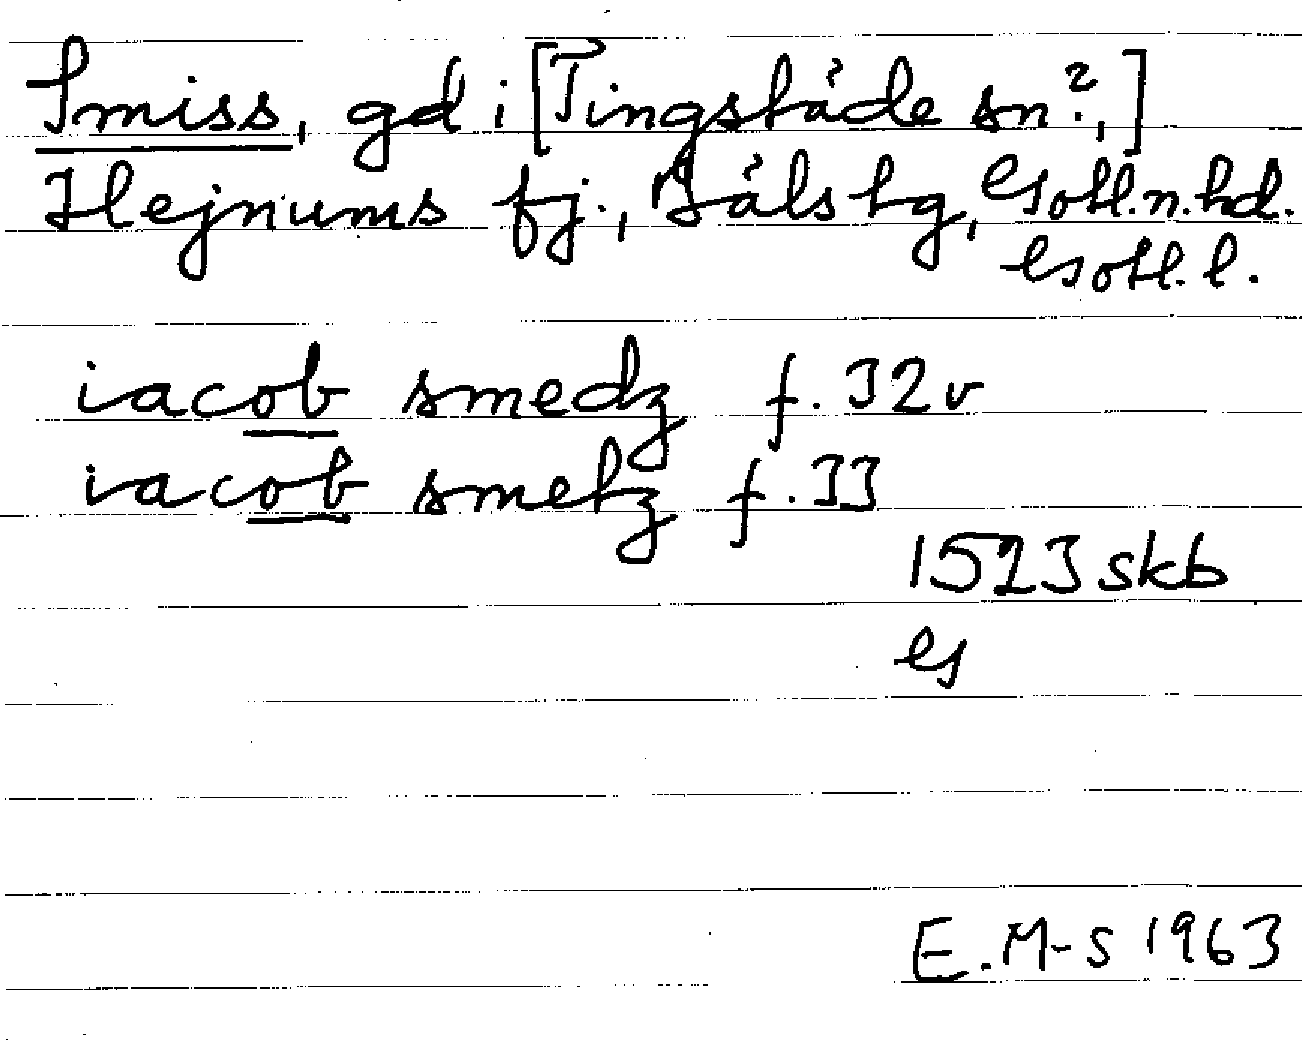 Smiss, gd i [Tingstäde sn?,]
Hejnums fj., Bäls tg, Gotl.n.hd.
Gotl. l.
iacob smedz f. 32v
iacob smetz f. 33
1523 skb
G
E.M-S 1963